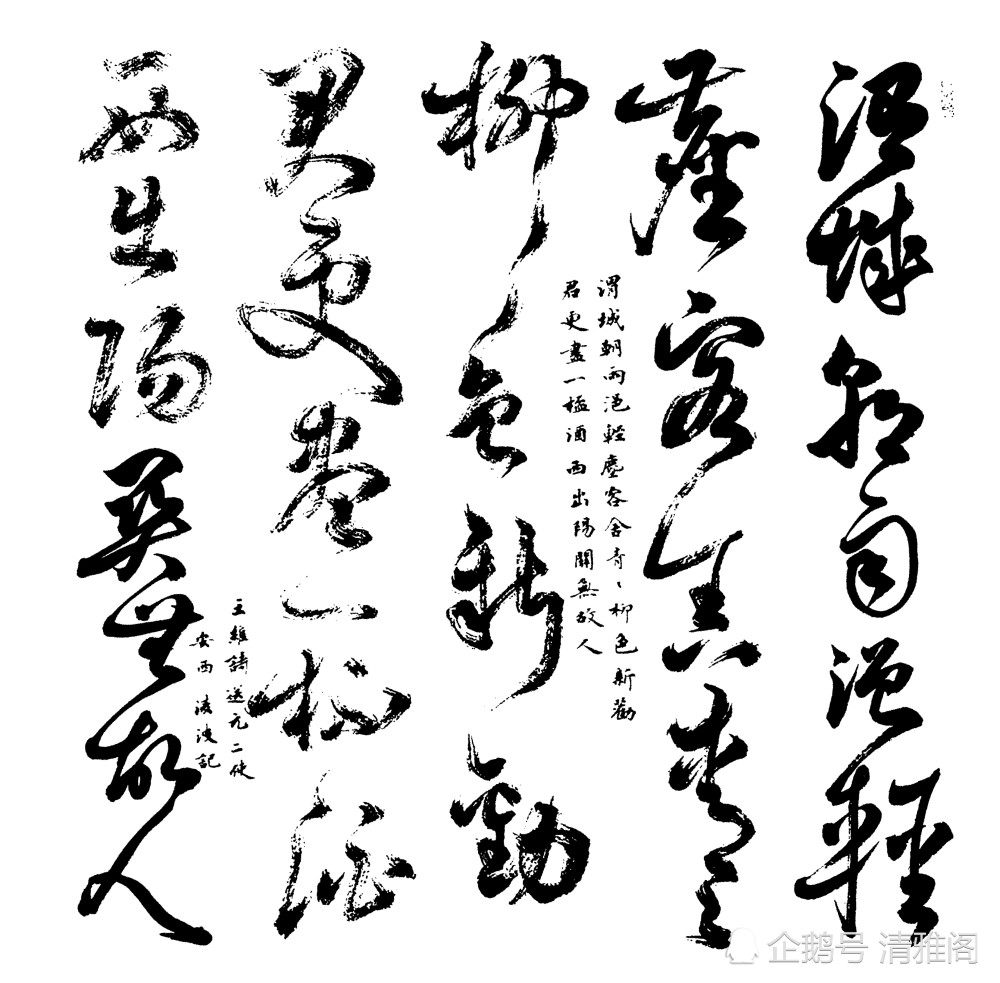 渭城朝雨浥輕
塵客舍青々
柳色新勸
君更盡一杯酒
西出陽關無故人
渭城朝雨浥輕塵客舍青々柳色新勸
君更盡一杯酒西出陽關無故人
王維詩送元二使
安西凌波記
企鹅号 清雅阁